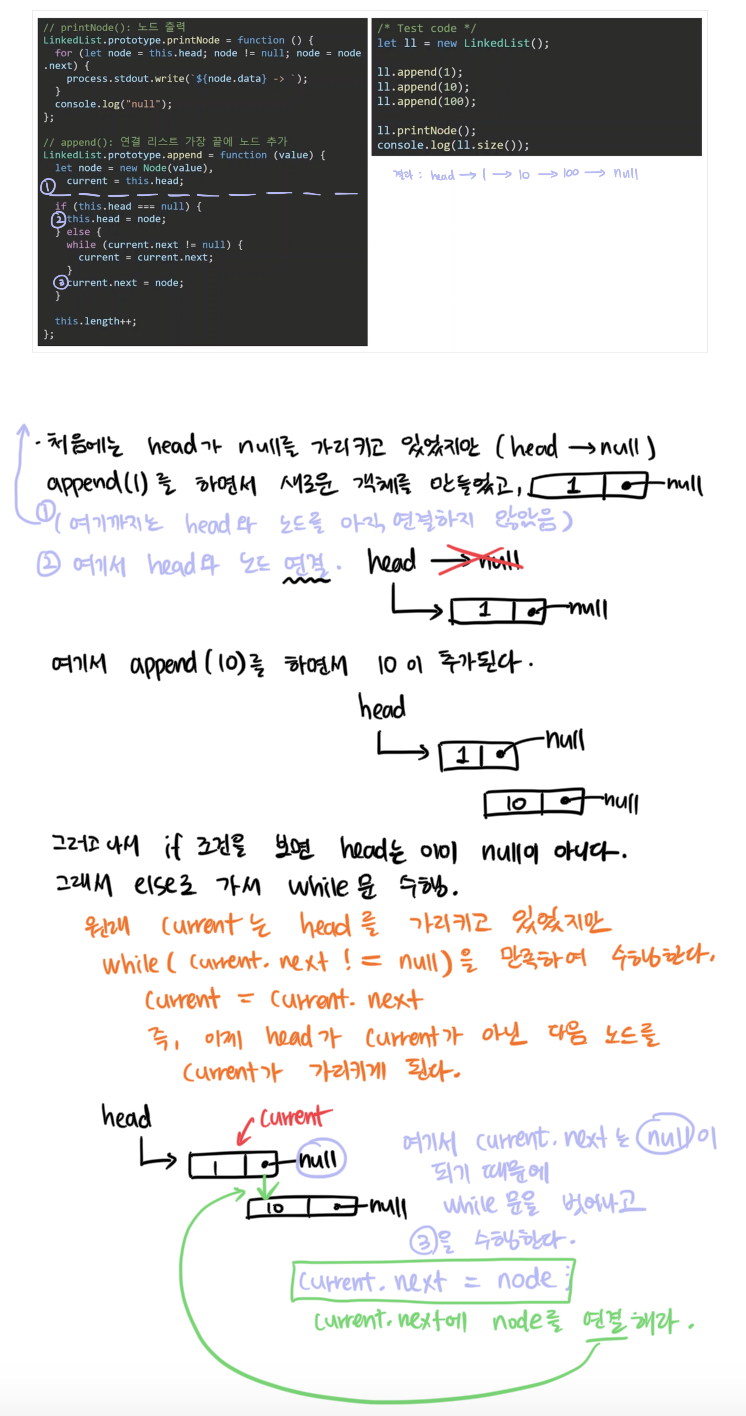 // printNode(): 노드 출력
LinkedList.prototype.printNode = function () {
for (let node = this.head; node != null; node = node
.next) {
process.stdout.write(`${node.data} -> `);
}
console.log("null");
};
// append(): 연결 리스트 가장 끝에 노드 추가
LinkedList.prototype.append = function (value) {
let node = new Node(value),
① current = this.head;
if (this.head === null) {
② this.head = node;
} else {
while (current.next != null) {
current = current.next;
}
③ current.next = node;
}
this.length++;
};
/* Test code */
let ll = new LinkedList();
ll.append(1);
ll.append(10);
ll.append(100);
ll.printNode();
console.log(ll.size());
결과 : head → 1 → 10 → 100 → null
· 처음에는 head가 null를 가리키고 있었지만 (head → null)
append(1)를 하면서 새로운 객체를 만들었고, 1 null
① (여기까지는 head와 노드를 아직 연결하지 않았음)
② 여기서 head와 노드 연결. head → null
1 null
여기서 append(10)를 하면서 10이 추가된다.
head
1 null
10 null
그러고 나서 if 조건을 보면 head는 이미 null이 아니다.
그래서 else로 가서 while문 수행.
원래 current는 head를 가리키고 있었지만
while( current.next != null)을 만족하여 수행한다.
current = current.next
즉, 이제 head가 current가 아닌 다음 노드를
current가 가리키게 된다.
head current
1 null
10 null
여기서 current.next는 null이
되기 때문에
while 문을 벗어나고
③을 수행한다.
current.next = node;
current.next에 node를 연결해라.